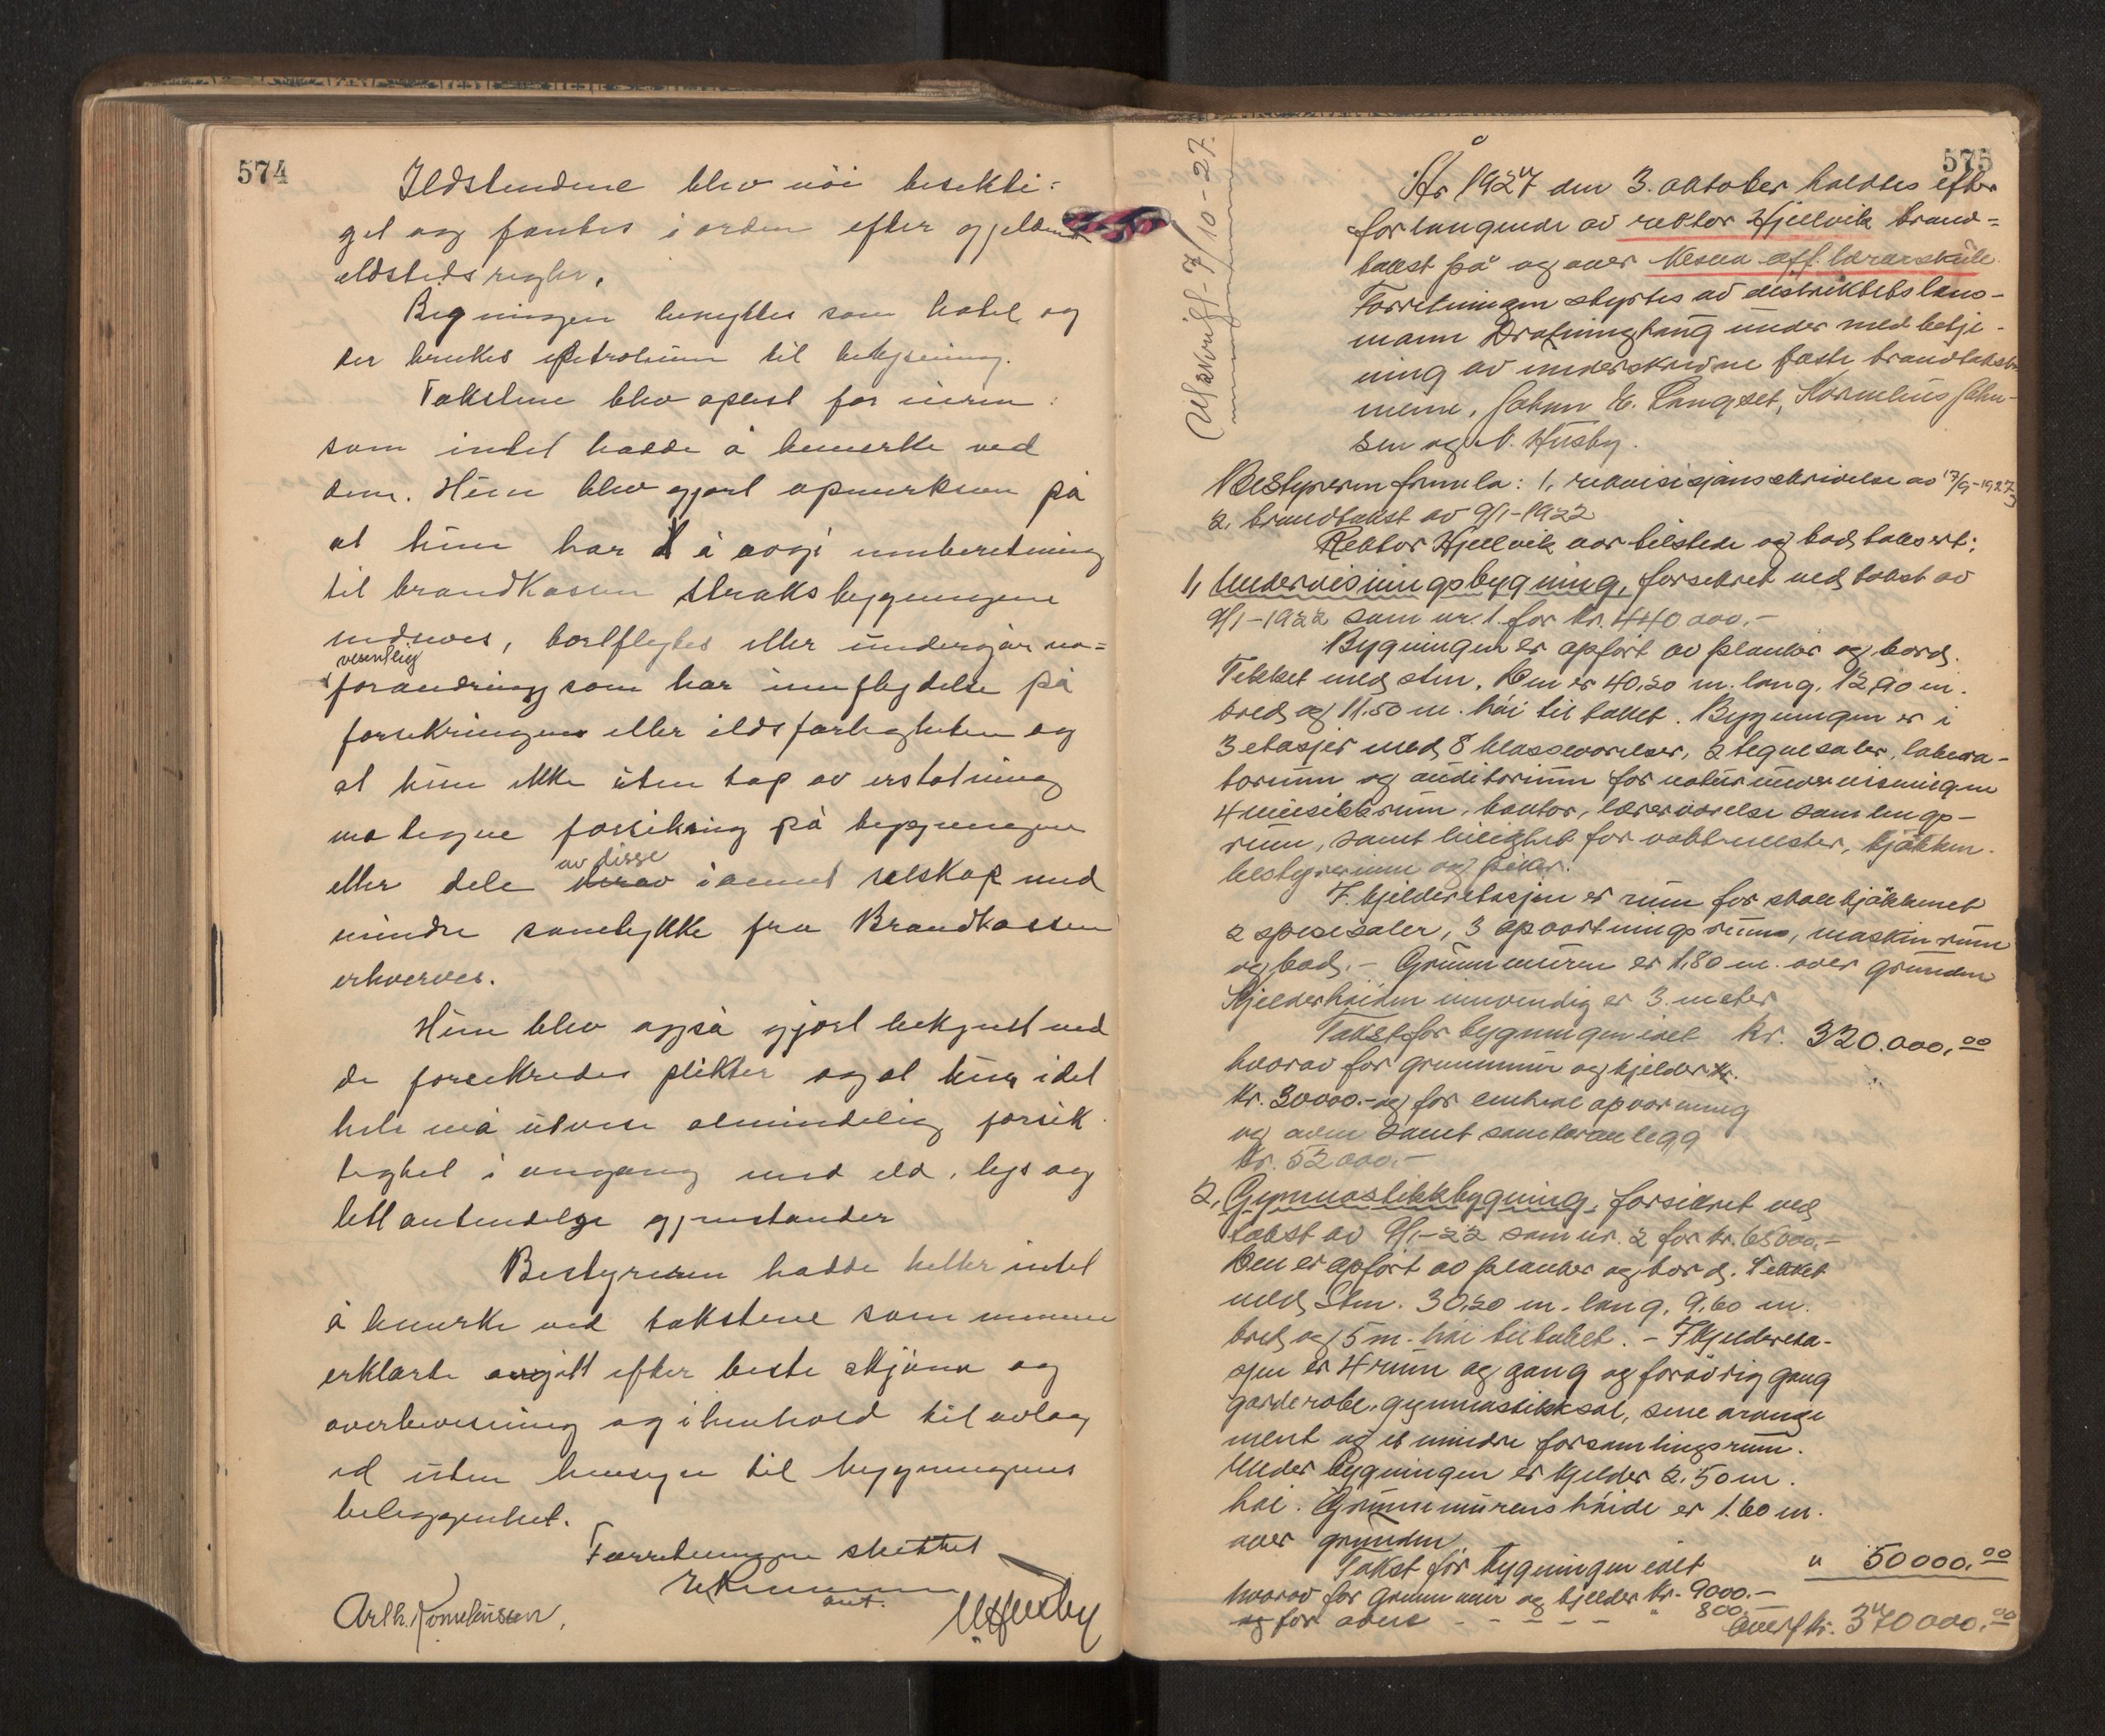 574
Ildstedene blev nöi besikti-
get og fantes i orden efter gjeldende
ildstedsregler.
Bygningen benyttes som hotel og
der brukes petroleum til belysning.
Takstene blev oplest for eieren
som intet hadde å bemerke ved
dem. Hun blev gjort opmerksom på
at hun har å avgi innberetning
til brandkassen straks bygningene
nedrives, bortflyttes eller undergår no-
vesentlig
forandring som har innflydelse på
forsikringen eller ildsfarligheten og
at hun ikke uten tap av erstatning
må tegne forsikring på bygningen
av disse
eller dele derav i annet selskap med
mindre samtykke fra Brandkassen
erhverves.
Hun blev også gjort bekjent med
de forsikredes plikter og at hun i det
hele må utvise almindelig forsik
tighet i omgang med ild, lys og
lett antendelige gjenstander
Bestyreren hadde heller intet
å bemerke ved takstene som mennene
erklærte avgitt efter beste skjönn og
overbevisning og i henhold til avlagt
ed uten hensyn til bygningens
beliggenhet.
Forretningen sluttet
Arth. Kornelиussen,
575
Utskrift 7/10-27.
År 1927 den 3. oktober holdtes efter
forlangende av rektor Hjellvik brand-
takst på og over Nesna off. lærarskule
Forretningen styrtes av distriktets lens-
mann Drotninghaug under medbetje-
ning av underskrevne faste brandtakst-
menn, Johan E. Langset, Kornelius John-
sen og N. Husby.
Bestyreren fremla: 1, rekvisisjonsskrivelse av 17/9-1927
2, brandtakst av 9/1-1922
Rektor Hjellvik var tilstede og bad taksert:
1, Undervisningsbygning, forsikret ved takst av
9/1-1922 som nr. 1. for kr. 440 000.-
Bygningen er opfört av planker og bord.
Tekket med sten. Den er 40,20 m. lang, 12,90 m.
bred og 11.50 m. høi til taket. Bygningen er i
3 etasjer med 8 klasseværelser, 2 tegnesaler, labora-
torium og auditorium for naturundervisningen
4 musikkrum, kontor, lærerværelse samlings-
rum, samt leilighet for vaktmester, kjökken-
bestyrerinne og piker.
I kjelderetasjen er rum for skolekjökkenet
2 spisesaler, 3 opvartningsrum, maskinrum
og bad. - Grunnmuren er 1,80 m. over grunden
Kjelderhöiden innvendig er 3. meter
Takst for bygningen ialt kr. 320.000,00
hvorav for grunnmur og kjelder kr.
kr. 30000.- og for central opvarming
og ovne samt sanitæranlegg
kr. 52 000.-
2, Gymnastikkbygning, forsikret ved
takst av 9/1-22 som nr. 2 for kr. 65000.-
Den er opfört av planker og bord. Tekket
med Sten. 30,20 m. lang, 9,60 m.
bred og 5 m. høi til taket. - I kjelderetа-
sjen er 4 rum og gang og forövrig gang
garderobe, gymnastikksal, scene arange
ment og et mindre forsamlingsrum.
Under bygningen er kjelder 2.50 m.
høi. Grunnmurens höide er 1.60 m.
over grunden
Takst for bygningen ialt " 50000,00
hvorav for grunnmur og kjelder kr. 9000.-
og for ovne - - - - - " 800.-
Overf kr. 370000,00